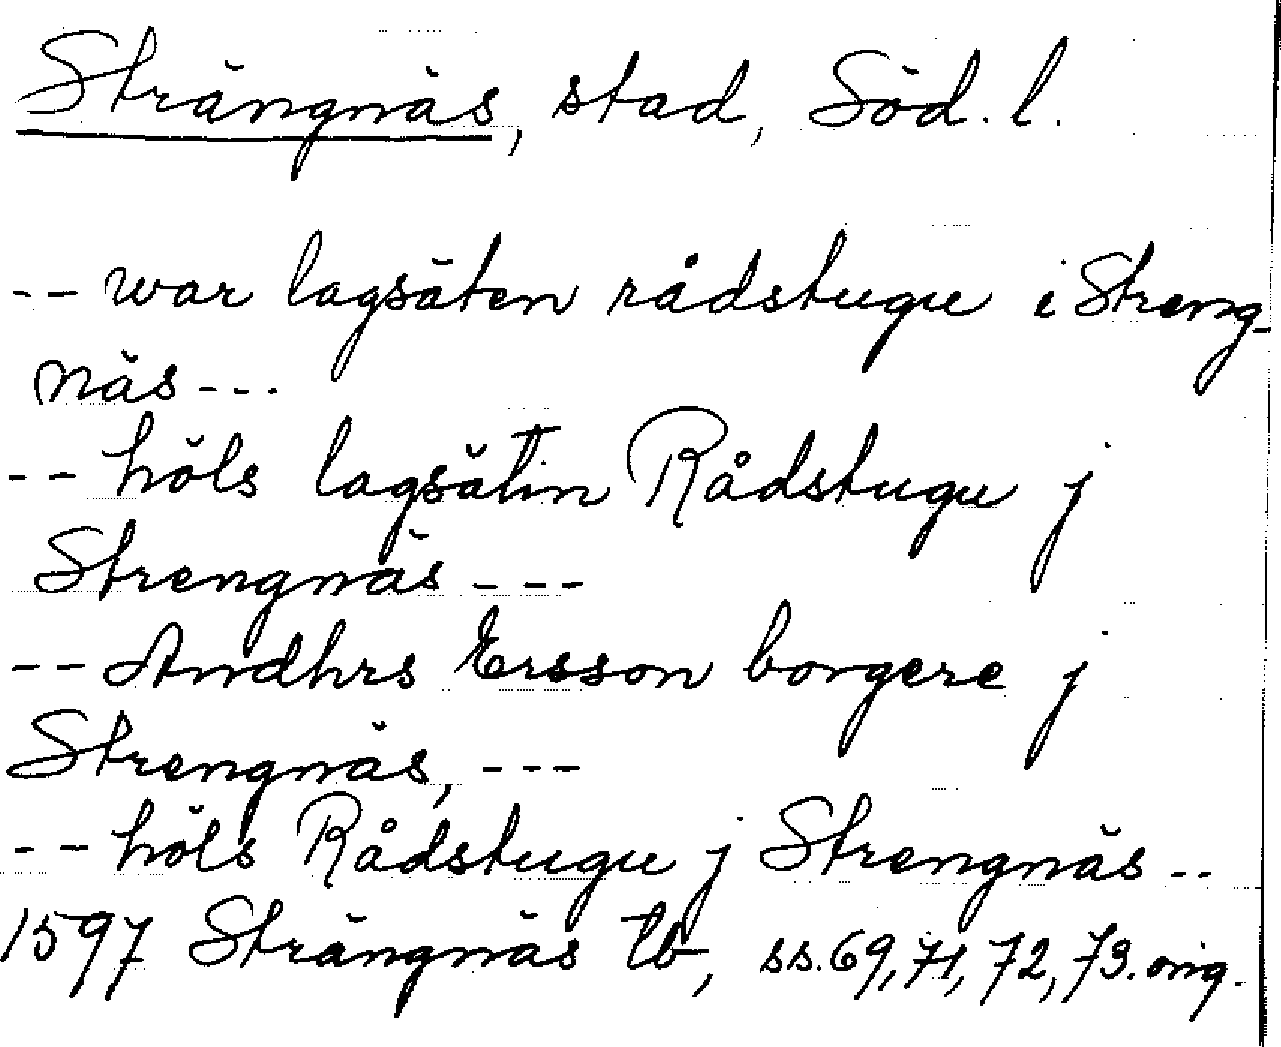 Strängnäs, stad, Söd. l.
-- war lagsäten rådstugu i Streng-
näs ---
-- höls lagsätin Rådstugu j
Strengnäs ---
-- Andhrs Ersson borgere j
Strengnäs, ---
-- höls Rådstugu j Strengnäs --
1597 Strängnäs tb, ss. 69, 71, 72, 73. orig.